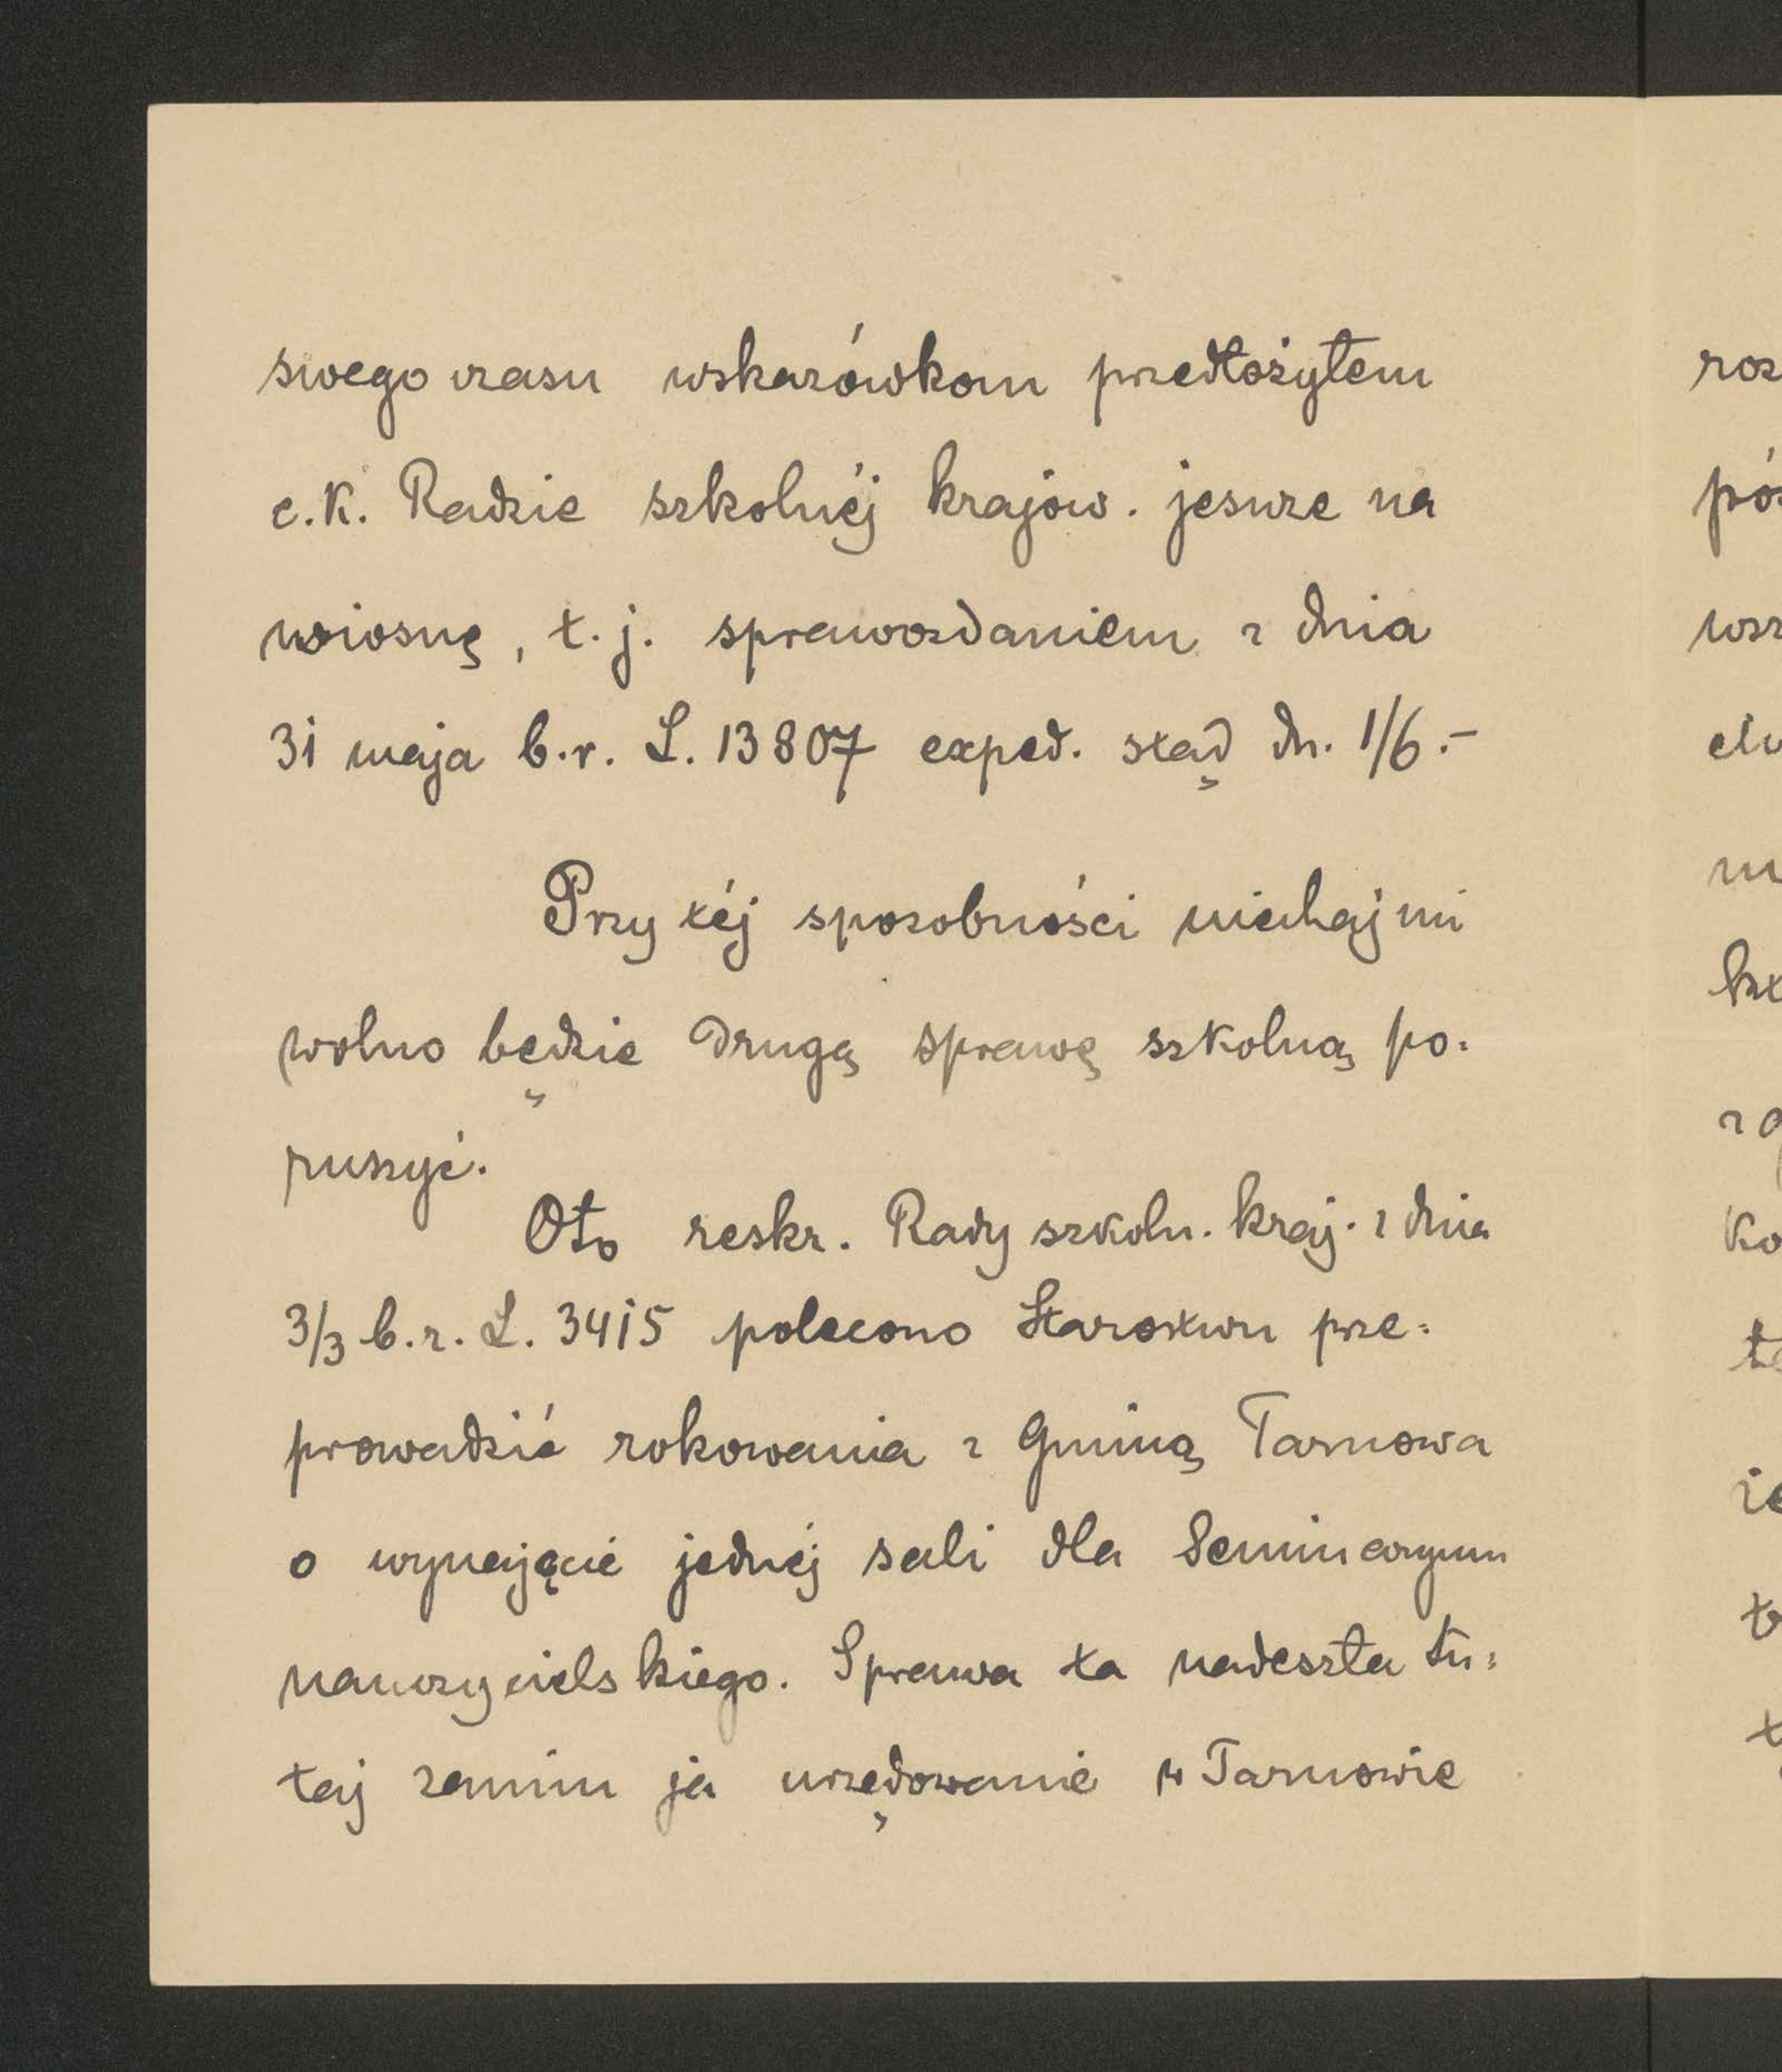 swego czasu wskazówkom przedłożyłem
c.K. Radzie szkolnéj krajow. jeszcze na
wiosnę, t.j. sprawozdaniem z dnia
31 maja b.r. L. 13807 exped. stąd dn. 1/6.-
Przy téj sposobności niechaj mi
wolno będzie drugą sprawę szkolną po:
ruszyć.
Oto reskr. Rady szkoln. kraj. z dnia
3/3 b.r. L. 3415 polecono Starostwu prze:
prowadzić rokowania z Gminą Tarnowa
o wynajęcie jednéj sali dla Seminaryum
nauczycielskiego. Sprawa ta nadeszła tu:
taj zanim ja urzędowanie w Tarnowie